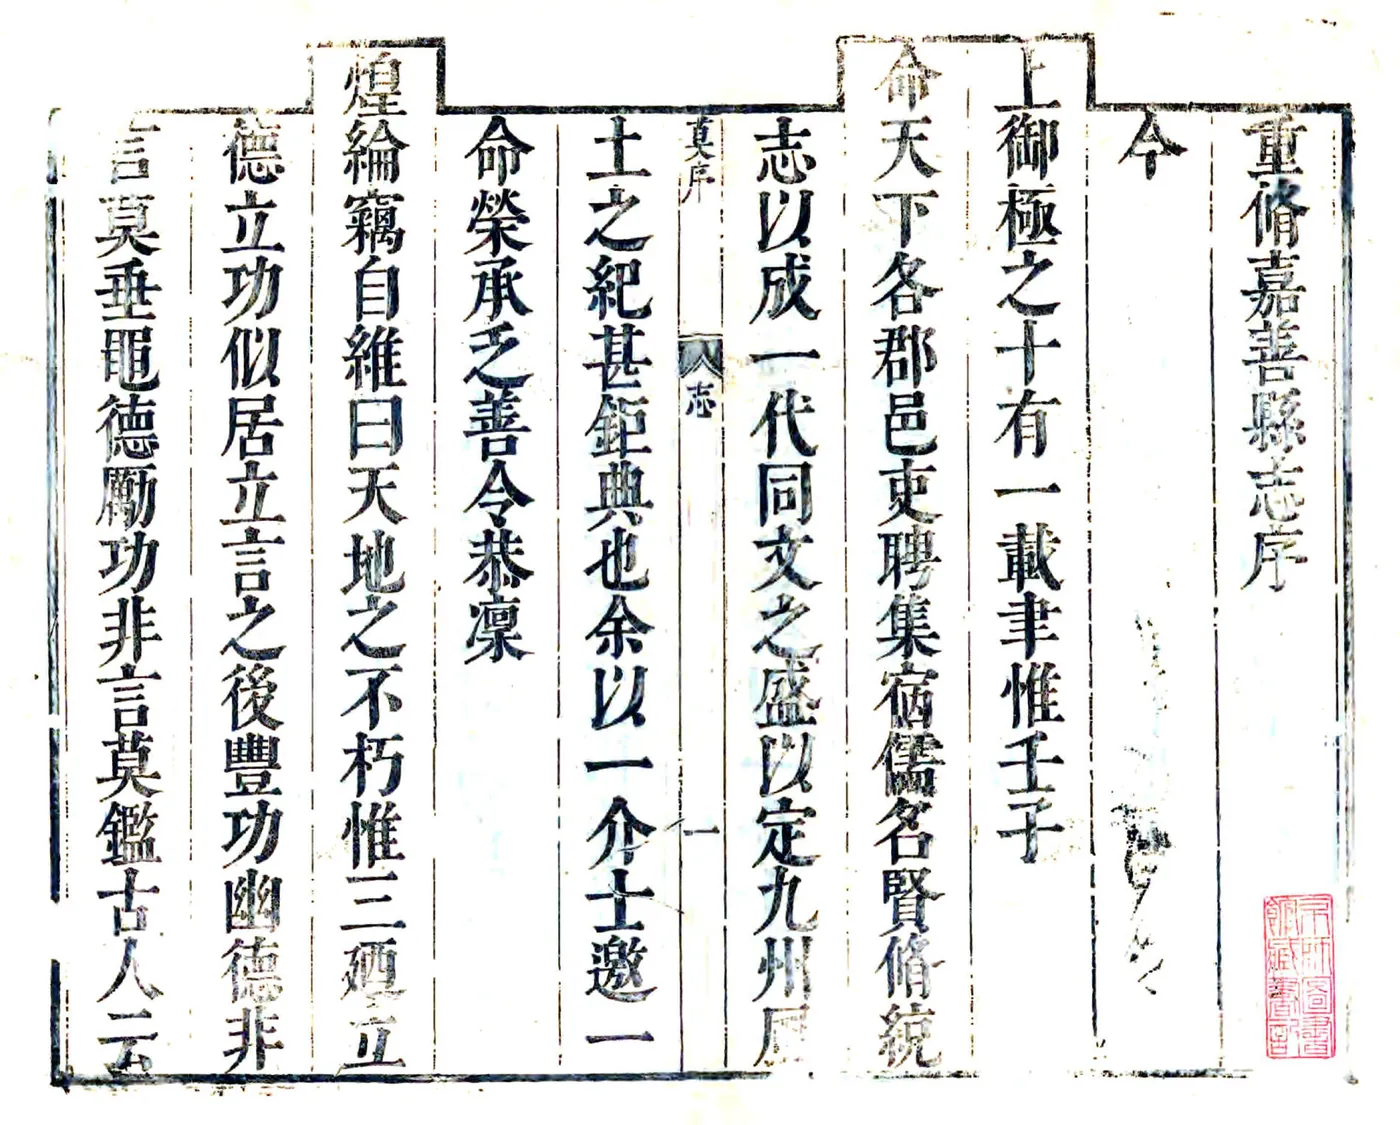 重脩嘉善縣志序
今
上御極之十有一載聿惟壬子
命天下各郡邑吏聘集宿儒名賢脩統
志以成一代同文之盛以定九州厥
莫序 志 一
土之紀甚鉅典也余以一介士邀一
命榮承乏善令恭凜
煌綸竊自維曰天地之不朽惟三廼立
德立功似居立言之後豐功幽德非
言莫垂黽德勵功非言莫鑑古人云
京師圖書
館藏書記